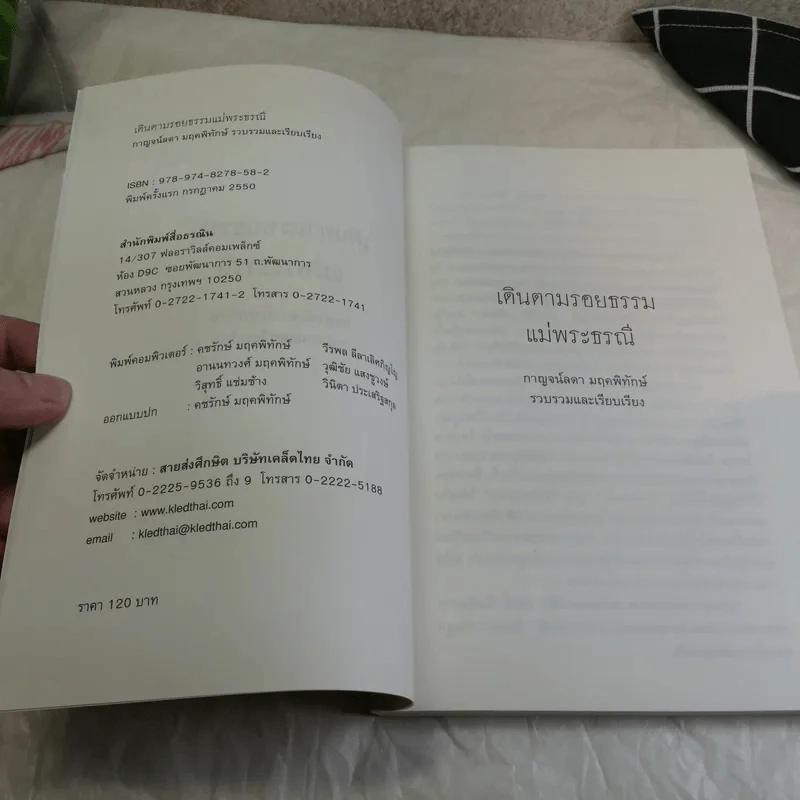 เดินตามรอยธรรมแม่พระธรณี
กาญจน์ลดา มฤคพิทักษ์ รวบรวมและเรียบเรียง
ISBN : 978-974-8278-58-2
พิมพ์ครั้งแรก กรกฎาคม 2550
สำนักพิมพ์สื่อธรณิน
14/307 ฟลอราวิลล์คอมเพล็กซ์
ห้อง D9C ซอยพัฒนาการ 51 ถ.พัฒนาการ
สวนหลวง กรุงเทพฯ 10250
โทรศัพท์ 0-2722-1741-2 โทรสาร 0-2722-1741
พิมพ์คอมพิวเตอร์ : คชรักษ์ มฤคพิทักษ์ วีรพล ลีลาเลิศภิญโญ
อานนทวงศ์ มฤคพิทักษ์ วุฒิชัย แสงชูวงษ์
วิสุทธิ์ แช่มช้าง วินิตา ประเสริฐสกุล
ออกแบบปก : คชรักษ์ มฤคพิทักษ์
จัดจำหน่าย : สายส่งศึกษิต บริษัทเคล็ดไทย จำกัด
โทรศัพท์ 0-2225-9536 ถึง 9 โทรสาร 0-2222-5188
website : www.kledthai.com
email : kledthai@kledthai.com
ราคา 120 บาท
เดินตามรอยธรรม
แม่พระธรณี
กาญจน์ลดา มฤคพิทักษ์
รวบรวมและเรียบเรียง